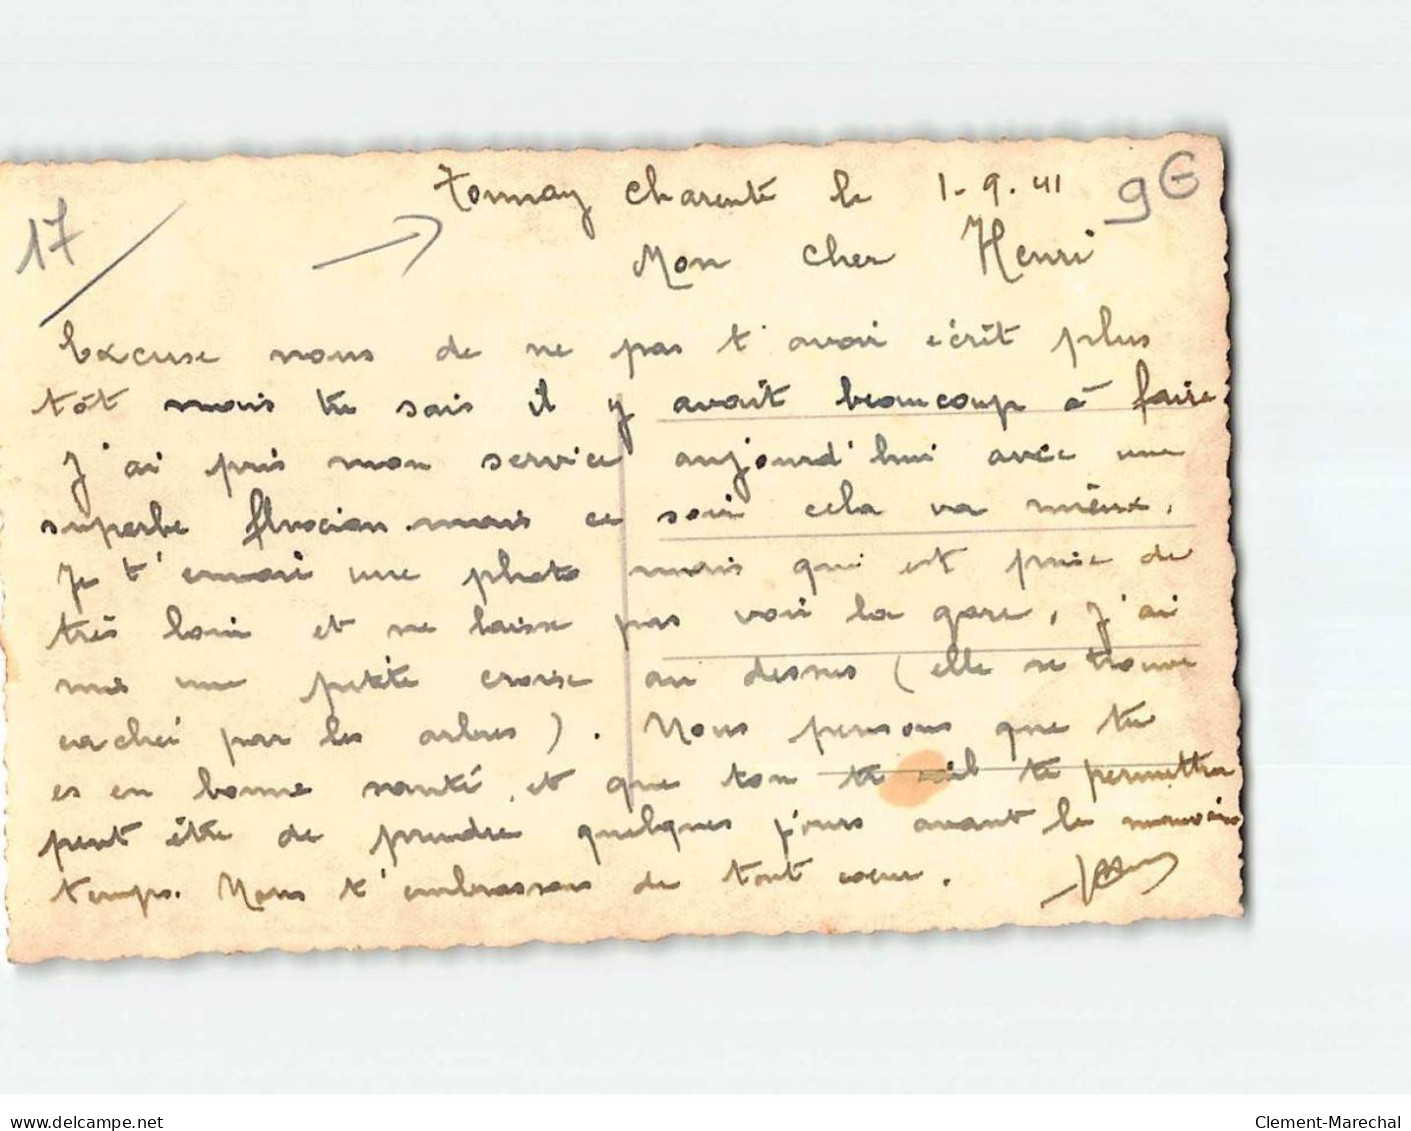 17
9G
Tonnay Charente le 1-9-41
Mon cher Henri
Excuse nous de ne pas t'avoir écrit plus
tôt mais tu sais il y avait beaucoup à faire
J'ai pris mon service aujourd'hui avec une
superbe fluxion mais ce soir cela va mieux.
Je t'envoie une photo mais qui est prise de
très loin et ne laisse pas voir la gare, j'ai
mis une petite croise au dessus (elle se trouve
caché par les arbres). Nous pensons que tu
es en bonne santé et que ton te permettra
peut être de prendre quelques jours avant le mauvais
temps. Nous t'embrassons de tout coeur.
www.delcampe.net
Clement-Marechal